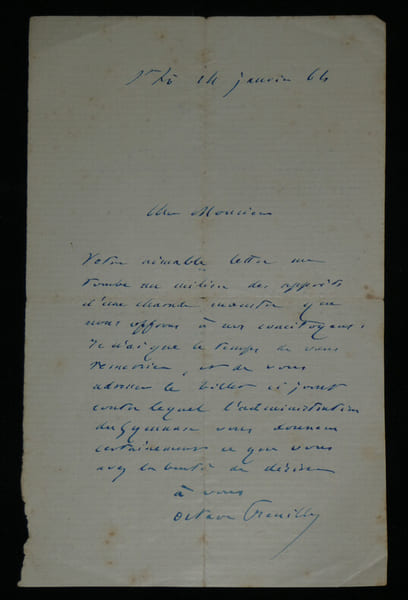 St Lô 14 janvier 64
Cher Monsieur
Votre aimable lettre me
tombe au milieu des apprêts
d'une charade monstre que
nous offrons à nos concitoyens :
Je n'ai que le temps de vous
remercier, et de vous
adresser le billet ci joint
contre lequel l'administration
du Gymnase vous donnera
certainement ce que vous
avez la bonté de désirer
à vous
Octave Feuillet